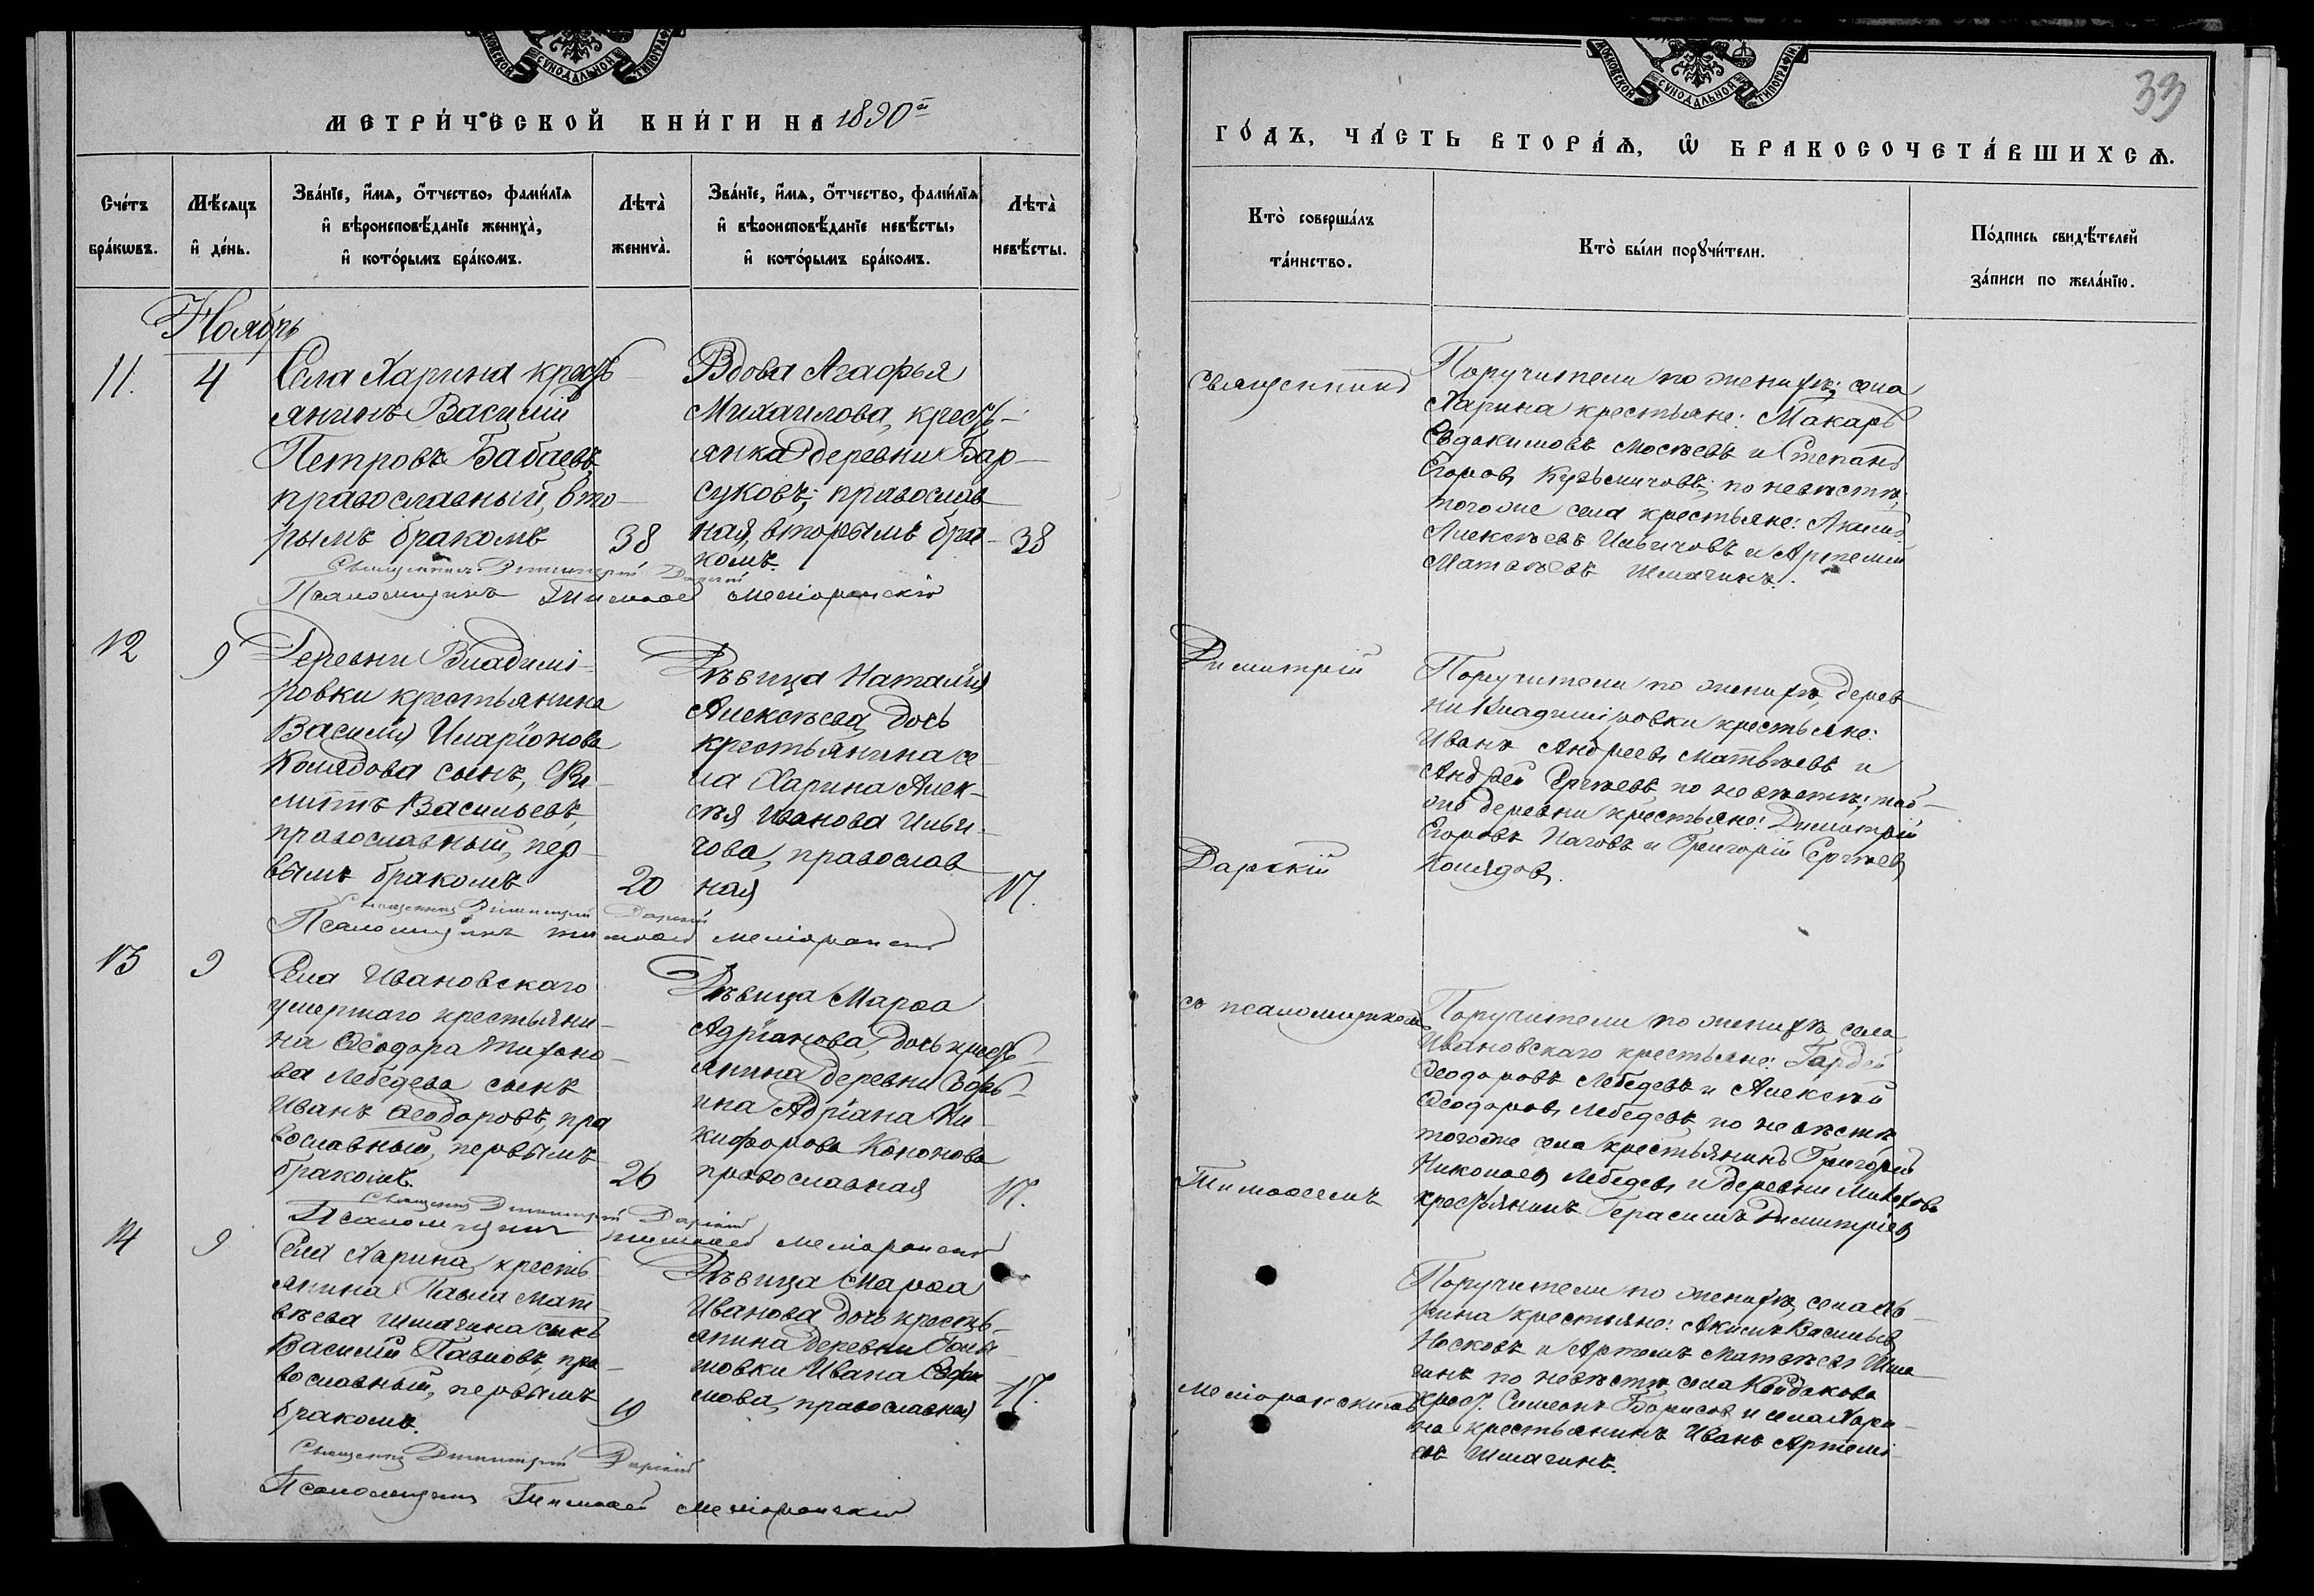 МОСКОВСКОЙ СѴНОДАЛЬНОЙ ТИПОГРАФІИ
МЕТРИ́ЧЕСКОЙ КНИ́ГИ НА 1890й
Сче́тъ бра́кѡвъ.
Мѣ́сяцъ и҆ де́нь.
Зва́нїе, и҆́мѧ, ѻ҆́тчество, фами́лїѧ и҆ вѣроисповѣ́данїе жениха̀, и҆ кото́рымъ бра́комъ.
Лѣта̀ жениха̀.
Зва́нїе, и҆́мѧ, ѻ҆́тчество, фами́лїѧ и҆ вѣроисповѣ́данїе невѣ́сты, и҆ кото́рымъ бра́комъ.
Лѣта̀ невѣ́сты.
Ноябрь
11.
4
Села Харина крестъ
янинъ Василій
Петровъ Бабаевъ,
православный, вто-
рымъ бракомъ
38
Вдова Агафья
Михаилова, кресть-
янка деревни Бар-
суковъ; православ
ная, вторымъ бра-
комъ.
38
Священникъ Димитрій Дарскій
Псаломщикъ Тимоѳей Меліоранскій
12
9
Деревни Владимі-
ровки крестьянина
Василія Иларіонова
Колядова сынъ, Фи-
липпъ Васильевъ,
православный, пер-
вымъ бракомъ
20
Дѣвица Наталія
Алексѣева, дочь
крестьянина се-
ла Харина Алек-
сѣя Иванова Ильи-
чова, православ
ная
17.
Священникъ Димитрій Дарскій
Псаломщикъ Тимоѳей Меліоранскій
13
9
Села Ивановскаго
умершаго крестьяни-
на Ѳеодора Тихоно-
ва Лебедева сынъ
Иванъ Ѳеодоровъ, пра
вославный, первымъ
бракомъ.
26
Дѣвица Марѳа
Адріанова, дочь крест-
янина деревни
Адріана Ни-
кифорова Кононова
православная
17.
Священникъ Димитрій Дарскій
Псаломщикъ Тимоѳей Меліоранскій
14
9
Села Харина, кресть-
янина Павла Мат-
вѣева Шмагина сынъ
Василій Павловъ, пра-
вославный, первымъ
бракомъ.
19
Дѣвица Марѳа
Иванова, дочь кресть-
янина деревни
Ивана Ефи
мова, православная
17.
Священникъ Димитрій Дарскій
Псаломщикъ Тимоѳей Меліоранскій
33
МОСКОВСКОЙ СѴНОДАЛЬНОЙ ТИПОГРАФІИ
ГО́ДЪ, ЧА́СТЬ ВТОРА́Ѧ, Ѽ БРАКОСОЧЕТА́ВШИХСѦ.
Кто̀ соверша́лъ та́инство.
Кто̀ бы́ли порꙋчи́тели.
По́дпись свидѣ́телей за́писи по жела́нїю.
Священникъ
Димитрій
Дарскій
съ псаломщикомъ
Тимоѳеемъ
Меліоранскимъ
Поручители по женихѣ; села
Харина крестьяне: Макаръ
Евдокимовъ Мосѣевъ и Степанъ
Егоровъ Кузьмичовъ; по невѣстѣ;
тогоже села крестьяне: Акимъ
Алексѣевъ Ильичовъ и Артемій
Матвѣевъ Шмагинъ.
Поручители по женихѣ, дерев
ни Владиміровки крестьяне:
Иванъ Андреевъ Матвѣевъ и
Андрей Сергѣевъ, по невѣстѣ; той-
же деревни крестьяне: Димитрій
Егоровъ и Григорій Сергѣевъ
Колядовъ.
Поручители по женихѣ села
Ивановскаго крестьяне: Гордей
Ѳеодоровъ Лебедевъ и Алексѣй
Ѳеодоровъ Лебедевъ, по невѣстѣ
тогоже села крестьянинъ Григорій
Николаевъ Лебедевъ и деревни
крестьянинъ Герасимъ Димитріевъ
Поручители по женихѣ, села Ха-
рина крестьяне: Акимъ Васильевъ
Носковъ и Артемъ Матвѣевъ Шма
гинъ по невѣстѣ, села
крест. Симеонъ Борисовъ и села Хари-
на крестьянинъ Иванъ Артемі-
евъ Шмагинъ.